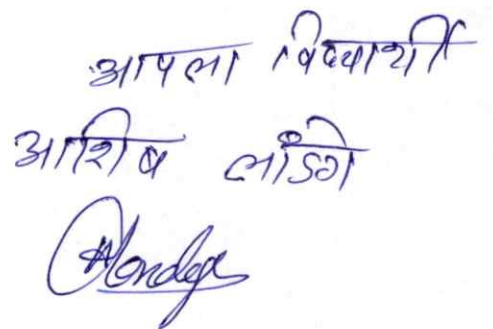 आपला विद्यार्थी
आशिष लोंडगे
Alondge